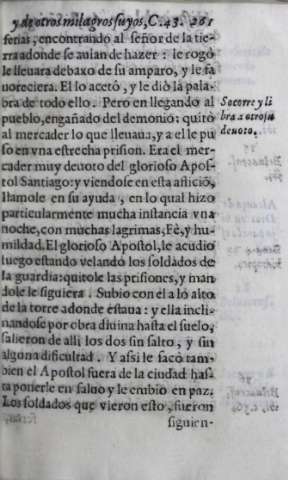 y de otros milagros suyos, C. 43. 261
ferias, encontrando al señor de la tie-
rra adonde se auian de hazer: le rogò
le lleuara debaxo de su amparo, y le fa
uoreciera. El lo acetó, y le diò la pala-
bra de todo ello. Pero en llegando al
pueblo, engañado del demonio: quitò
al mercader lo que lleuaua, y a el le pu
so en vna estrecha prision. Era el mer-
cader muy deuoto del glorioso Apos-
tol Santiago: y viendose en esta aflició,
llamole en su ayuda, en lo qual hizo
particularmente mucha instancia vna
noche, con muchas lagrimas, Fè, y hu-
mildad. El glorioso Apostol, le acudio
luego estando velando los soldados de
la guardia: quitole las prisiones, y man
dole le siguiera. Subio con él a lo alto
de la torre adonde estaua: y ella incli-
nandose por obra diuina hasta el suelo,
salieron de alli los dos sin salto, y sin
alguna dificultad. Y assi le sacò tam-
bien el Apostol fuera de la ciudad has-
ta ponerle en saluo y le embio en paz.
Los soldados que vieron esto, fueron
siguien-
Socorre y li
bra a otro su
deuoto.